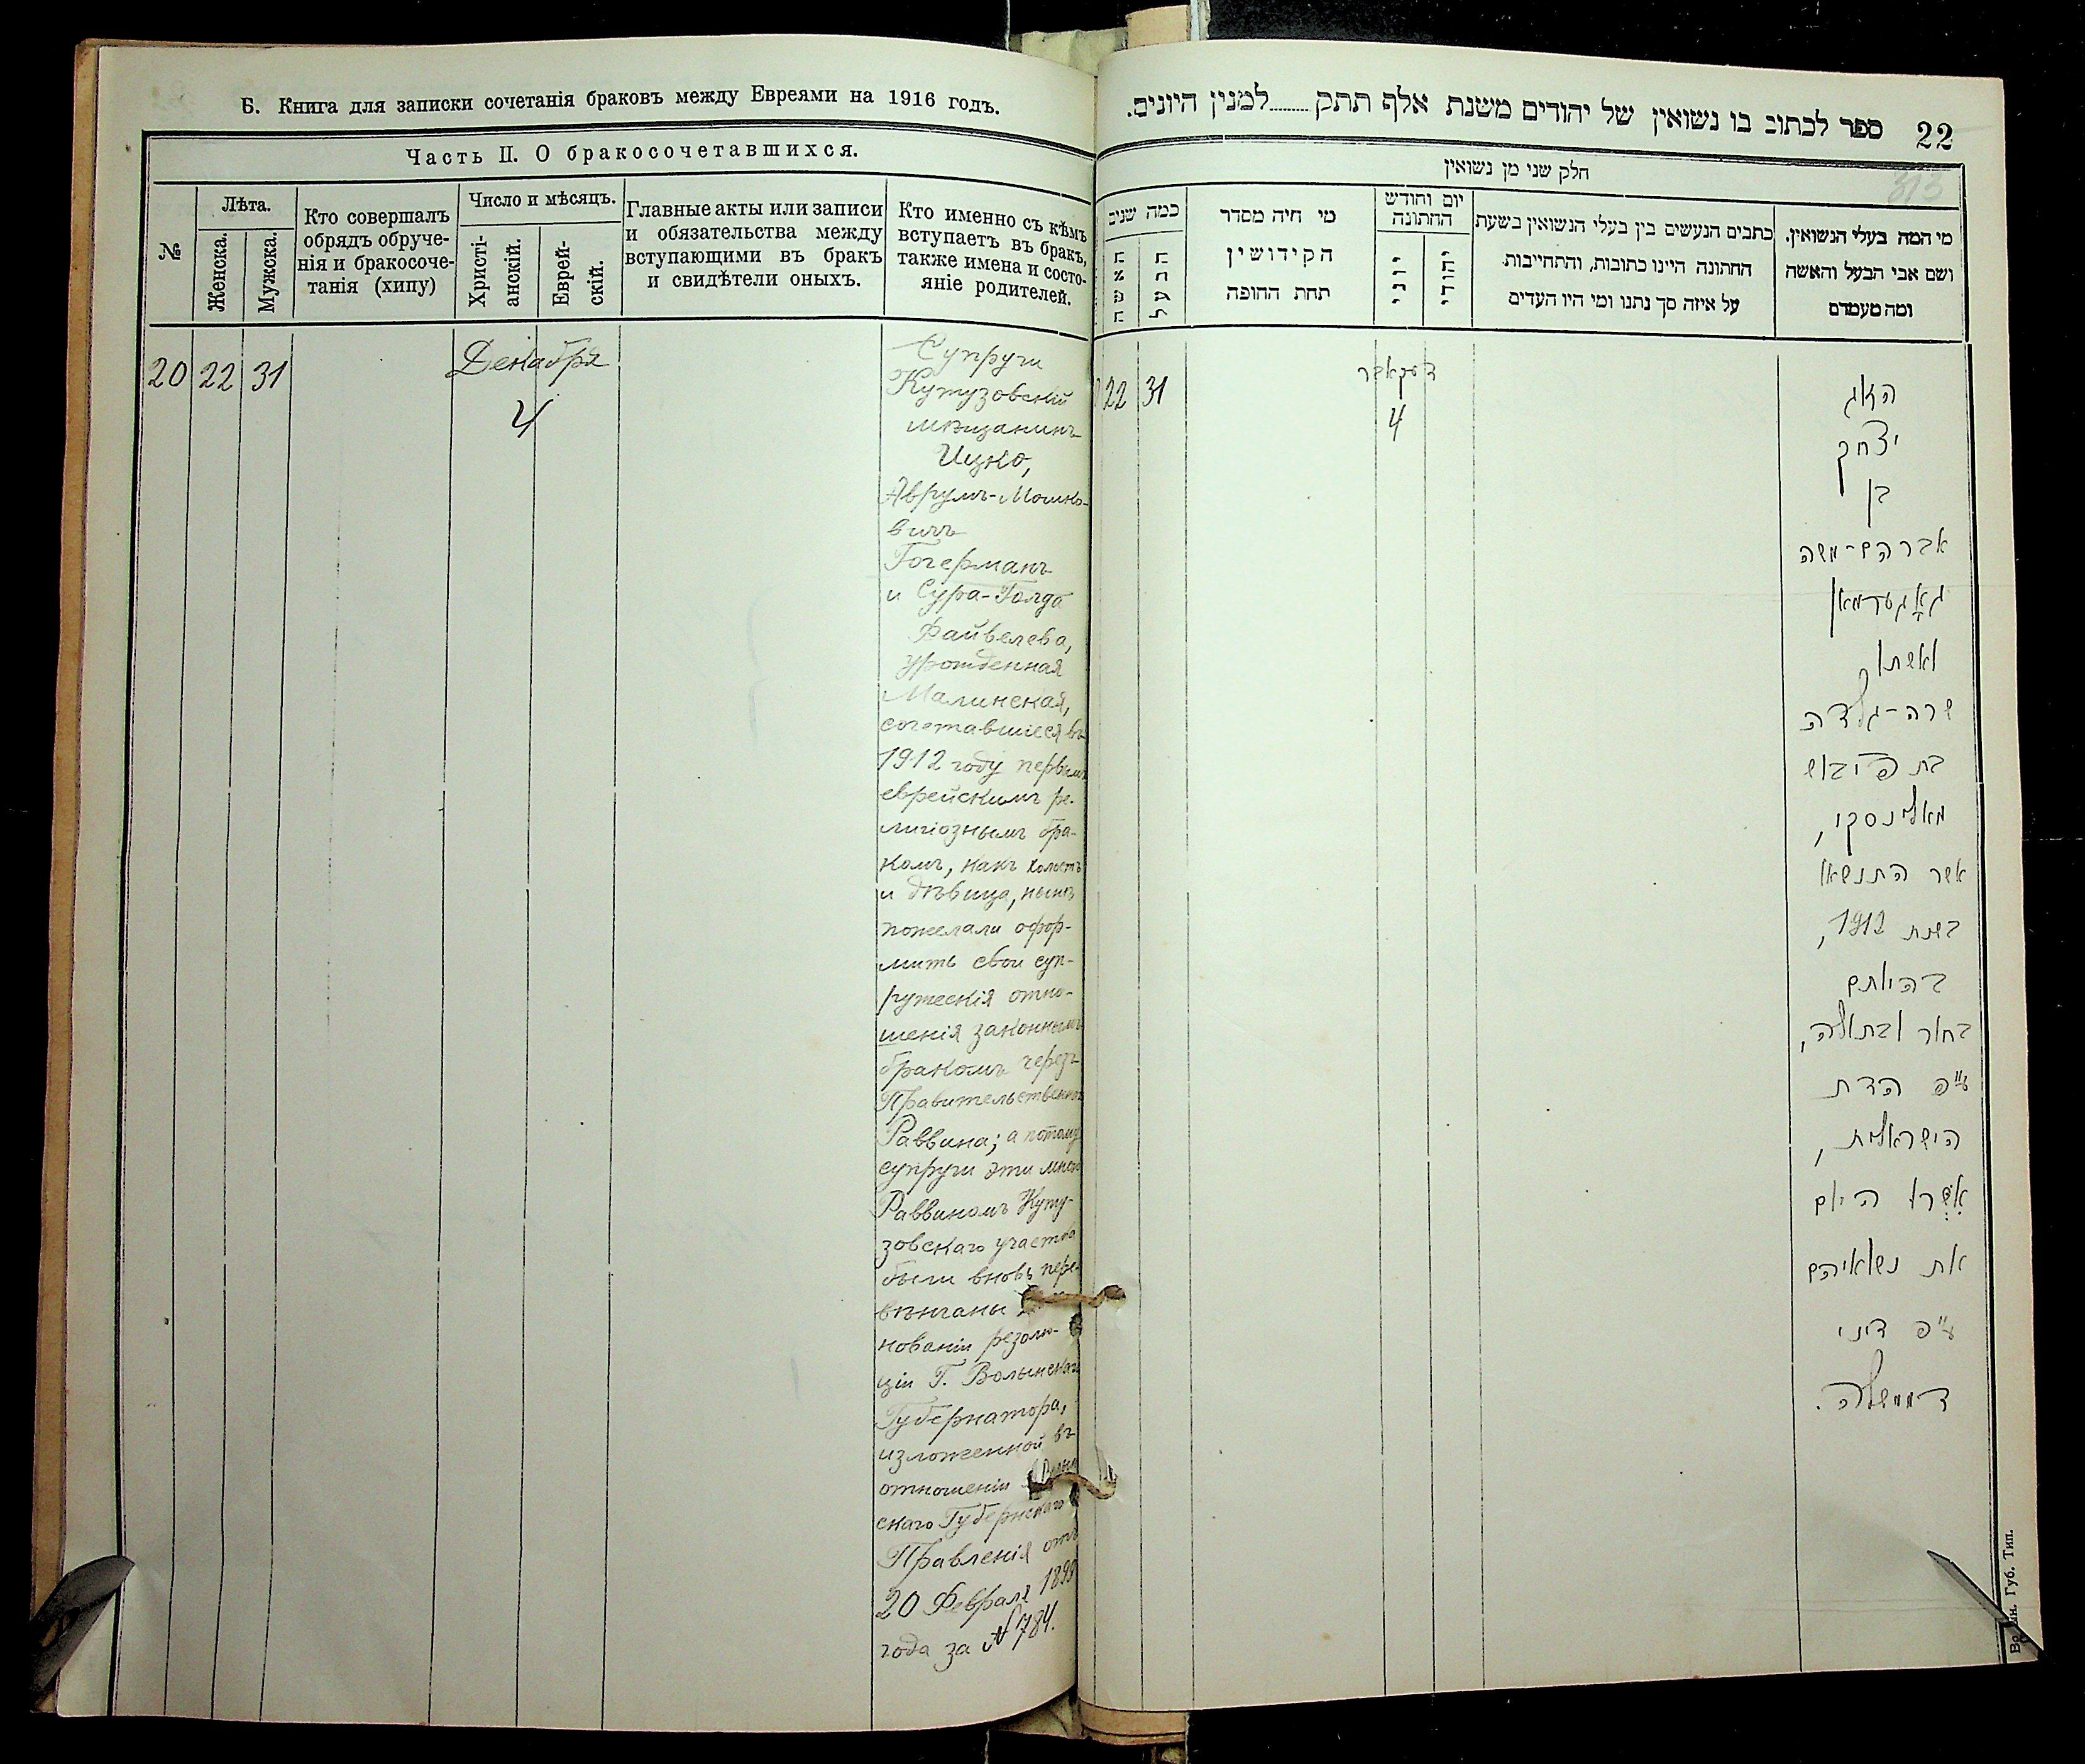 Б. Книга для записки сочетанія браковъ между Евреями на 1916 годъ.
Часть II. О бракосочетавшихся.
№
Лѣта.
Женска.
Мужска.
Кто совершалъ
обрядъ обруче-
нія и бракосоче-
танія (хипу)
Число и мѣсяцъ.
Христі-
анскій.
Еврей-
скій.
Главные акты или записи
и обязательства между
вступающими въ бракъ
и свидѣтели оныхъ.
Кто именно съ кѣмъ
вступаетъ въ бракъ,
также имена и состо-
яніе родителей.
20 22 31
Декабря
4
Супруги
Кутузовскій
мѣщанинъ
Ицко,
Аврумъ-Мошко-
вичъ
Гогерманъ
и Сура-Голда
Файвелева,
урожденная
Малинская,
сочетавшіеся въ
1912 году первымъ
еврейскимъ ре-
лигіознымъ бра-
комъ, какъ холостъ
и дѣвица, нынѣ
пожелали офор-
мить свои суп-
ружескія отно-
шенія законнымъ
бракомъ черезъ
Правительственнаго
Раввина; а потому
супруги эти мною
Раввиномъ Куту-
зовскаго участка
были вновь пере-
вѣнчаны
нованіи резолю-
ціи Г. Волынскаго
Губернатора,
изложенной въ
отношеніи Волын
скаго Губернскаго
Правленія отъ
20 Февраля 1893
года за № 784.
ספר לכתוב בו נשואין של יהודים משנת אלף תתק.........למנין היונים. 22
315
חלק שני מן נשואין
מי המה בעלי הנשואין.
ושם אבי הבעל והאשה
ומה מעמדם
כתבים הנעשים בין בעלי הנשואין בשעת
החתונה היינו כתובות, והתחייבות
על איזה סך נתנו ומי היו העדים
יום וחודש
החתונה
יהודי
יוני
מי חיה מסדר
הקידושין
תחת החופה
כמה שנים
הבעל
האשה
22 31
דעקאבר
4
הזוג
יצחק
בן
אברהם-משה
גאָגערמאן
ואשתו
שרה-גולדה
בת פייבוש
מאלינסקי,
אשר התנשאו
בשנת 1912,
בהיותם
בחור ובתולה,
ע"פ הדת
הישראלית,
אִשְּׁרוּ היום
את נשואיהם
ע"פ דיני
דממשלה.
Губ. Тип.